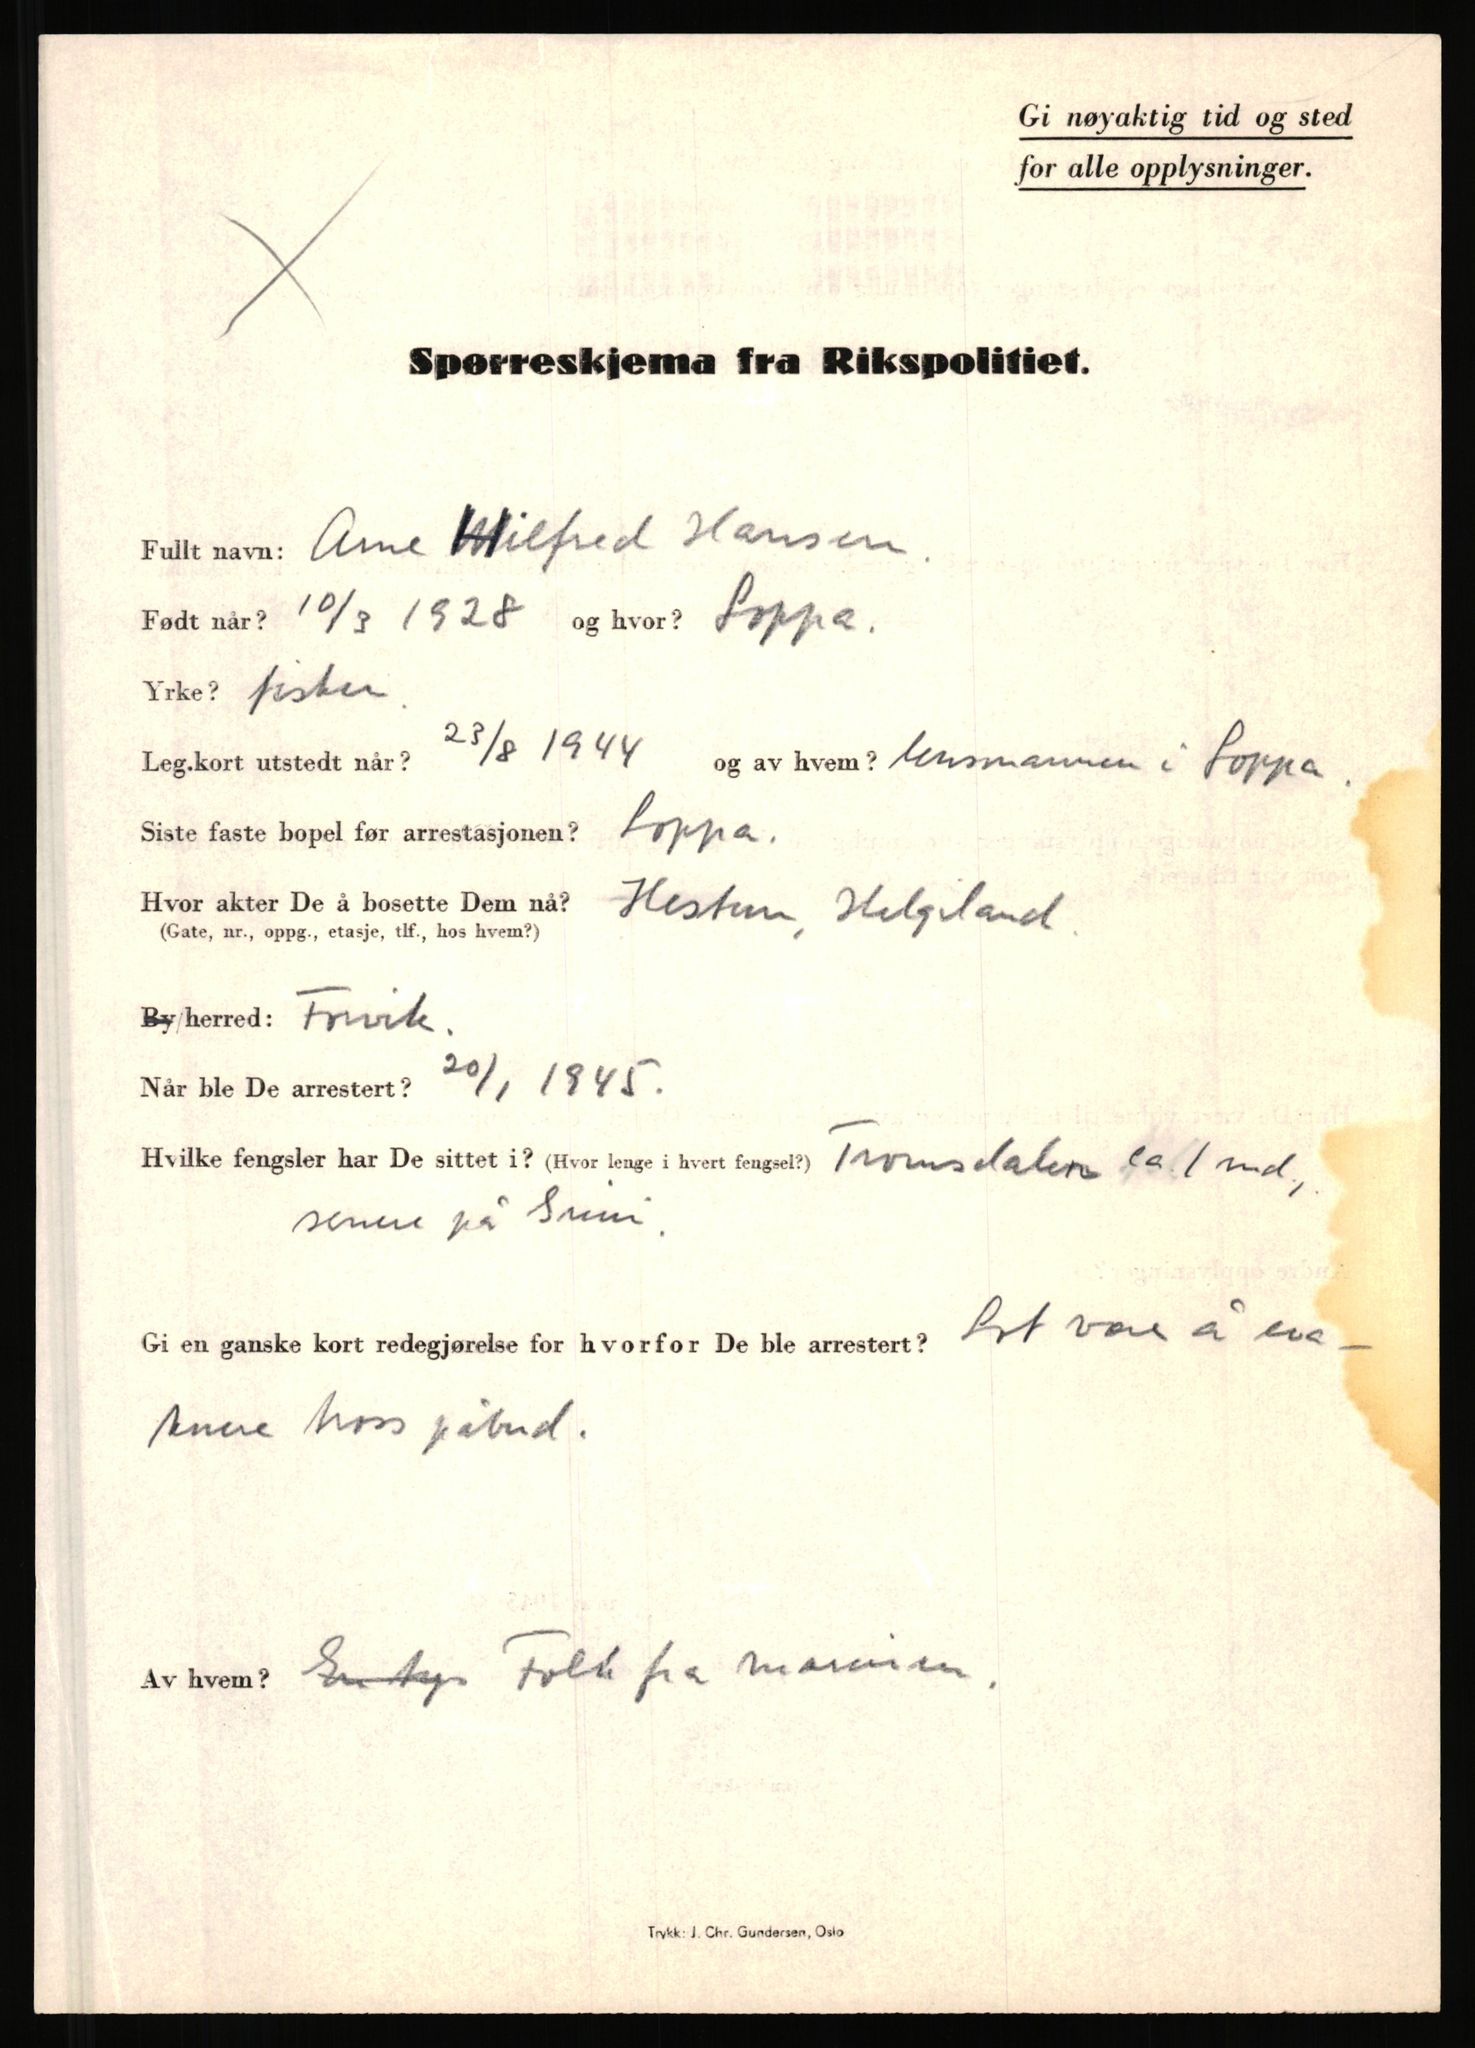 Gi nøyaktig tid og sted
for alle opplysninger.
Spørreskjema fra Rikspolitiet.
Fullt navn: Arne Wilfred Hansen.
Født når? 10/3 1928 og hvor? Loppa.
Yrke? fisker.
Leg.kort utstedt når? 23/8 1944 og av hvem? lensmannen i Loppa.
Siste faste bopel før arrestasjonen? Loppa.
Hvor akter De å bosette Dem nå? Hestun, Helgeland.
(Gate, nr., oppg., etasje, tlf., hos hvem?)
By/herred: Forvik.
Når ble De arrestert? 20/1 1945.
Hvilke fengsler har De sittet i? (Hvor lenge i hvert fengsel?) Tromsdalen ca. 1 md.,
senere på Grini.
Gi en ganske kort redegjørelse for hvorfor De ble arrestert? Lot være å eva-
kuere tross påbud.
Av hvem? Folk fra marinen.
Trykk: J. Chr. Gundersen, Oslo